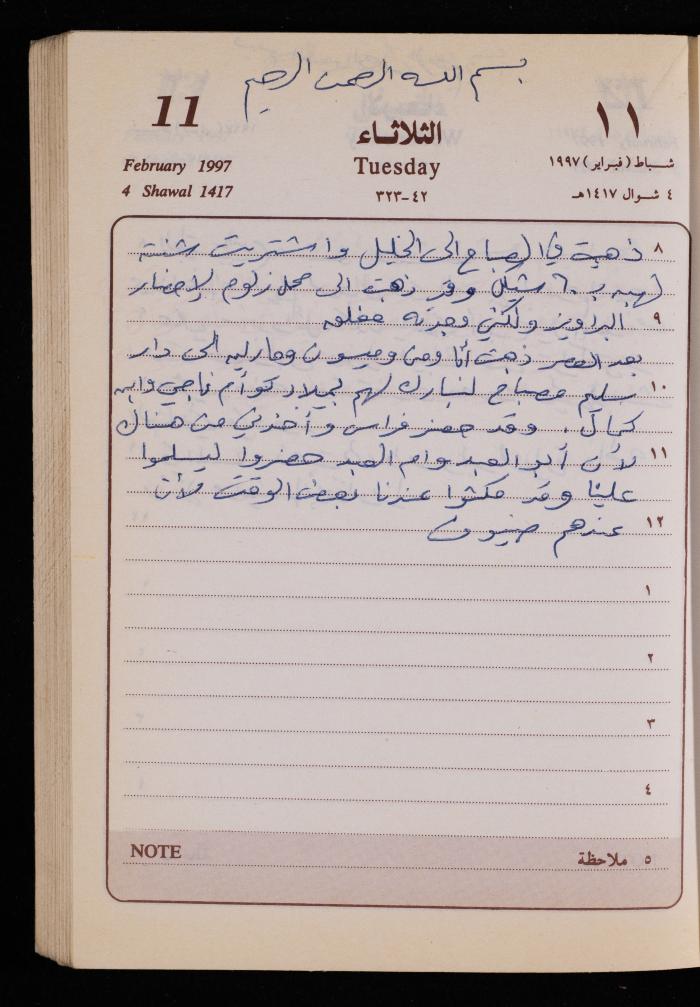 بسم الله الرحمن الرحيم
11
الثلاثـاء
١١
February 1997
Tuesday
شـباط (فبراير) ١٩٩٧
4 Shawal 1417
٤٢-٣٢٣
٤ شـوال ١٤١٧هـ
٨ ذهبت في الصباح الى الخليل واشتريت شنته
لهبه ب ٦٠ شيكل وقد ذهبت الى محل زلوم لإحضار
٩ البراويز ولكني وجدته مغلقه
بعد العصر ذهبت أنا ومنى وميسون وماريه الى دار
١٠ سليم مصباح لنبارك لهم بميلاد توأم ناجي وابنه
كمال . وقد حضر فراس وأخذني من هناك
١١ لأن أبو العبد وام العبد حضروا ليسلموا
علينا وقد مكثوا عندنا بعض الوقت لأن
١٢ عندهم ضيوف
١
٢
٣
٤
NOTE
٥ ملاحظة